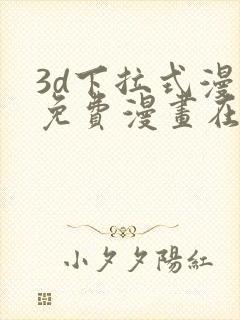 3d下拉式漫
免費漫畫在
小夕夕陽紅